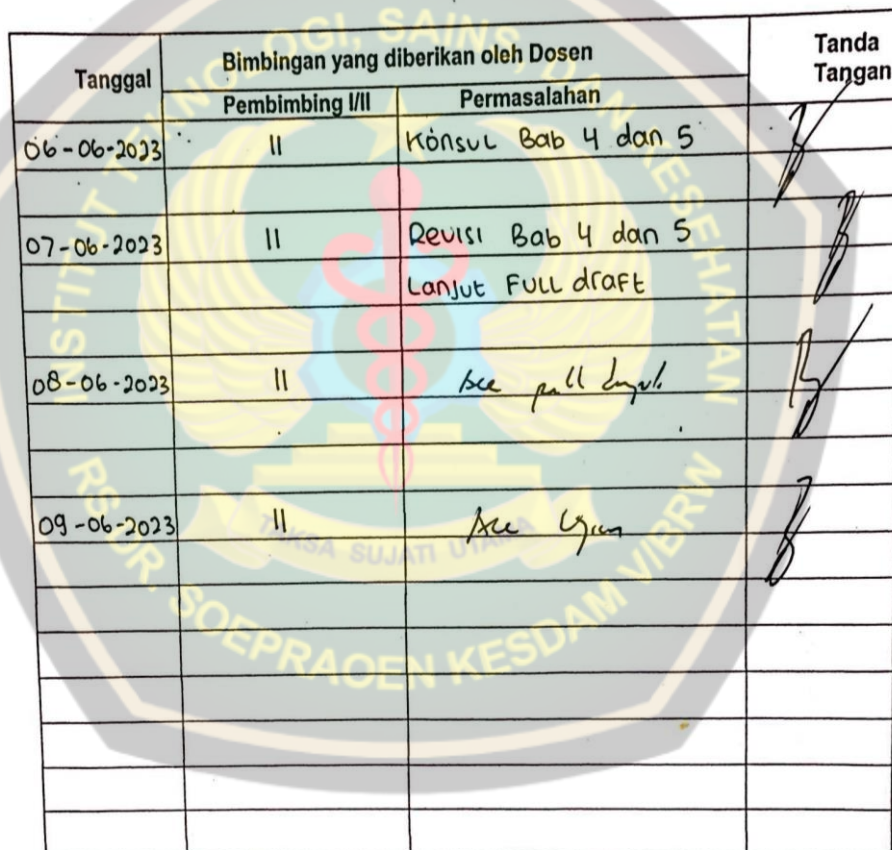 Tanggal
Bimbingan yang diberikan oleh Dosen
Tanda
Tangan
Pembimbing I/II
Permasalahan
06-06-2023 II Konsul Bab 4 dan 5
07-06-2023 II Revisi Bab 4 dan 5
Lanjut Full draft
08-06-2023 II
09-06-2023 II Acc
INSTITUT TEKNOLOGI, SAINS, DAN KESEHATAN
TAKSA SUJATI UTAMA
RS.DR. SOEPRAOEN KESDAM V/BRW